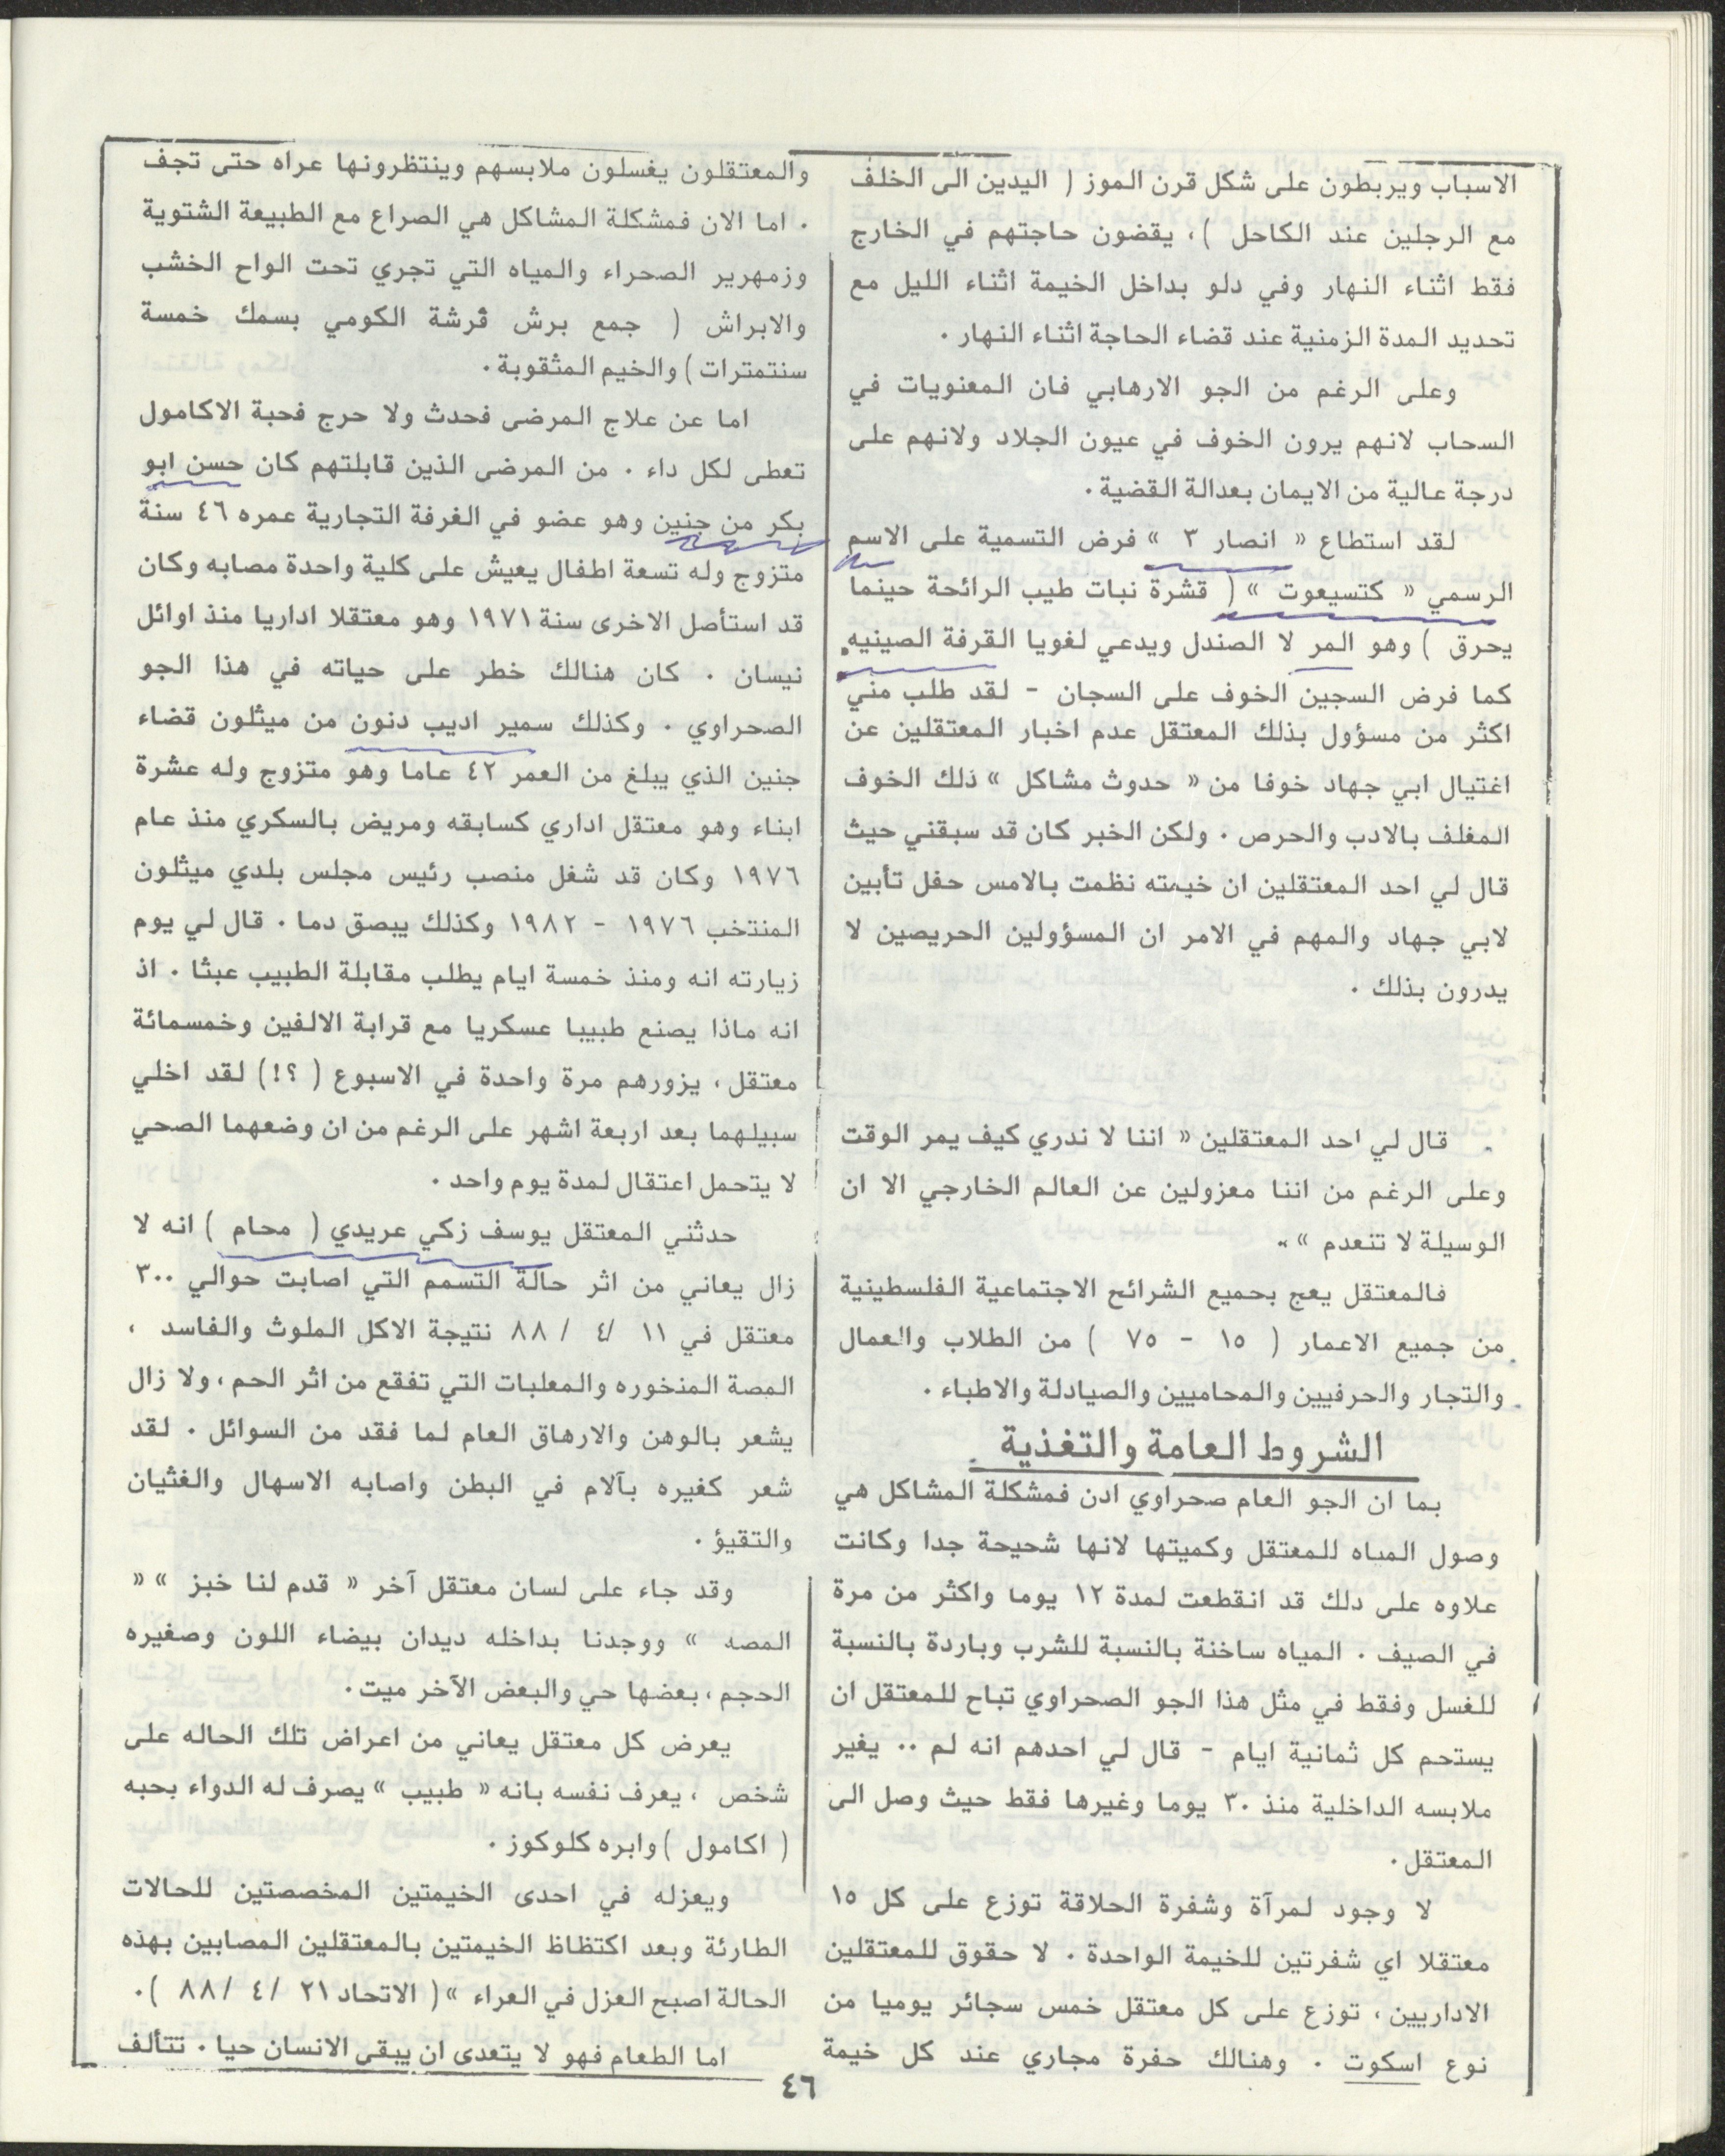 الاسباب ويربطون على شكل قرن الموز ( اليدين الى الخلف
مع الرجلين عند الكاحل ) ، يقضون حاجتهم في الخارج
فقط اثناء النهار وفي دلو بداخل الخيمة اثناء الليل مع
تحديد المدة الزمنية عند قضاء الحاجة اثناء النهار .
وعلى الرغم من الجو الارهابي فان المعنويات في
السحاب لانهم يرون الخوف في عيون الجلاد ولانهم على
درجة عالية من الايمان بعدالة القضية .
لقد استطاع « انصار ٣ » فرض التسمية على الاسم
الرسمي « كتسيعوت » ( قشرة نبات طيب الرائحة حينما
يحرق ) وهو المر لا الصندل ويدعي لغويا القرفة الصينيه .
كما فرض السجين الخوف على السجان - لقد طلب مني
اكثر من مسؤول بذلك المعتقل عدم اخبار المعتقلين عن
اغتيال ابي جهاد خوفا من « حدوث مشاكل » ذلك الخوف
المغلف بالادب والحرص . ولكن الخبر كان قد سبقني حيث
قال لي احد المعتقلين ان خيمته نظمت بالامس حفل تأبين
لابي جهاد والمهم في الامر ان المسؤولين الحريصين لا
يدرون بذلك .
قال لي احد المعتقلين « اننا لا ندري كيف يمر الوقت
وعلى الرغم من اننا معزولين عن العالم الخارجي الا ان
الوسيلة لا تنعدم » .
فالمعتقل يعج بحميع الشرائح الاجتماعية الفلسطينية
من جميع الاعمار ( ١٥ - ٧٥ ) من الطلاب والعمال
والتجار والحرفيين والمحاميين والصيادلة والاطباء .
الشروط العامة والتغذية
بما ان الجو العام صحراوي ادن فمشكلة المشاكل هي
وصول المياه للمعتقل وكميتها لانها شحيحة جدا وكانت
علاوه على دلك قد انقطعت لمدة ١٢ يوما واكثر من مرة
في الصيف . المياه ساخنة بالنسبة للشرب وباردة بالنسبة
للغسل وفقط في مثل هذا الجو الصحراوي تباح للمعتقل ان
يستحم كل ثمانية ايام - قال لي احدهم انه لم .. يغير
ملابسه الداخلية منذ ٣٠ يوما وغيرها فقط حيث وصل الى
المعتقل .
لا وجود لمرآة وشفرة الحلاقة توزع على كل ١٥
معتقلا اي شفرتين للخيمة الواحدة . لا حقوق للمعتقلين
الاداريين ، توزع على كل معتقل خمس سجائر يوميا من
نوع اسكوت . وهنالك حفرة مجاري عند كل خيمة
والمعتقلون يغسلون ملابسهم وينتظرونها عراه حتى تجف
. اما الان فمشكلة المشاكل هي الصراع مع الطبيعة الشتوية
وزمهرير الصحراء والمياه التي تجري تحت الواح الخشب
والابراش ( جمع برش فرشة الكومي بسمك خمسة
سنتمترات ) والخيم المثقوبة .
اما عن علاج المرضى فحدث ولا حرج فحبة الاكامول
تعطى لكل داء . من المرضى الذين قابلتهم كان حسن ابو
بكر من جنين وهو عضو في الغرفة التجارية عمره ٤٦ سنة
متزوج وله تسعة اطفال يعيش على كلية واحدة مصابه وكان
قد استأصل الاخرى سنة ١٩٧١ وهو معتقلا اداريا منذ اوائل
نيسان . كان هنالك خطر على حياته في هذا الجو
الصحراوي . وكذلك سمير اديب دنون من ميثلون قضاء
جنين الذي يبلغ من العمر ٤٢ عاما وهو متزوج وله عشرة
ابناء وهو معتقل اداري كسابقه ومريض بالسكري منذ عام
١٩٧٦ وكان قد شغل منصب رئيس مجلس بلدي ميثلون
المنتخب ١٩٧٦ - ١٩٨٢ وكذلك يبصق دما . قال لي يوم
زيارته انه ومنذ خمسة ايام يطلب مقابلة الطبيب عبثا . اذ
انه ماذا يصنع طبيبا عسكريا مع قرابة الالفين وخمسمائة
معتقل ، يزورهم مرة واحدة في الاسبوع ( ؟! ) لقد اخلي
سبيلهما بعد اربعة اشهر على الرغم من ان وضعهما الصحي
لا يتحمل اعتقال لمدة يوم واحد .
حدثني المعتقل يوسف زكي عريدي ( محام ) انه لا
زال يعاني من اثر حالة التسمم التي اصابت حوالي ٣٠٠
معتقل في ١١ /٤ / ٨٨ نتيجة الاكل الملوث والفاسد ،
المصة المنخوره والمعلبات التي تفقع من اثر الحم ، ولا زال
يشعر بالوهن والارهاق العام لما فقد من السوائل . لقد
شعر كغيره بآلام في البطن واصابه الاسهال والغثيان
والتقيؤ .
وقد جاء على لسان معتقل آخر « قدم لنا خبز » «
المصه » ووجدنا بداخله ديدان بيضاء اللون وصغيره
الحجم ، بعضها حي والبعض الآخر ميت .
يعرض كل معتقل يعاني من اعراض تلك الحاله على
شخص ، يعرف نفسه بانه « طبيب » يصرف له الدواء بحبه
( اكامول ) وابره كلوكوز .
ويعزله في احدى الخيمتين المخصصتين للحالات
الطارئة وبعد اكتظاظ الخيمتين بالمعتقلين المصابين بهذه
الحالة اصبح العزل في العراء » ( الاتحاد ٢١ /٤ /٨٨ ) .
اما الطعام فهو لا يتعدى ان يبقى الانسان حيا . تتألف
٤٦